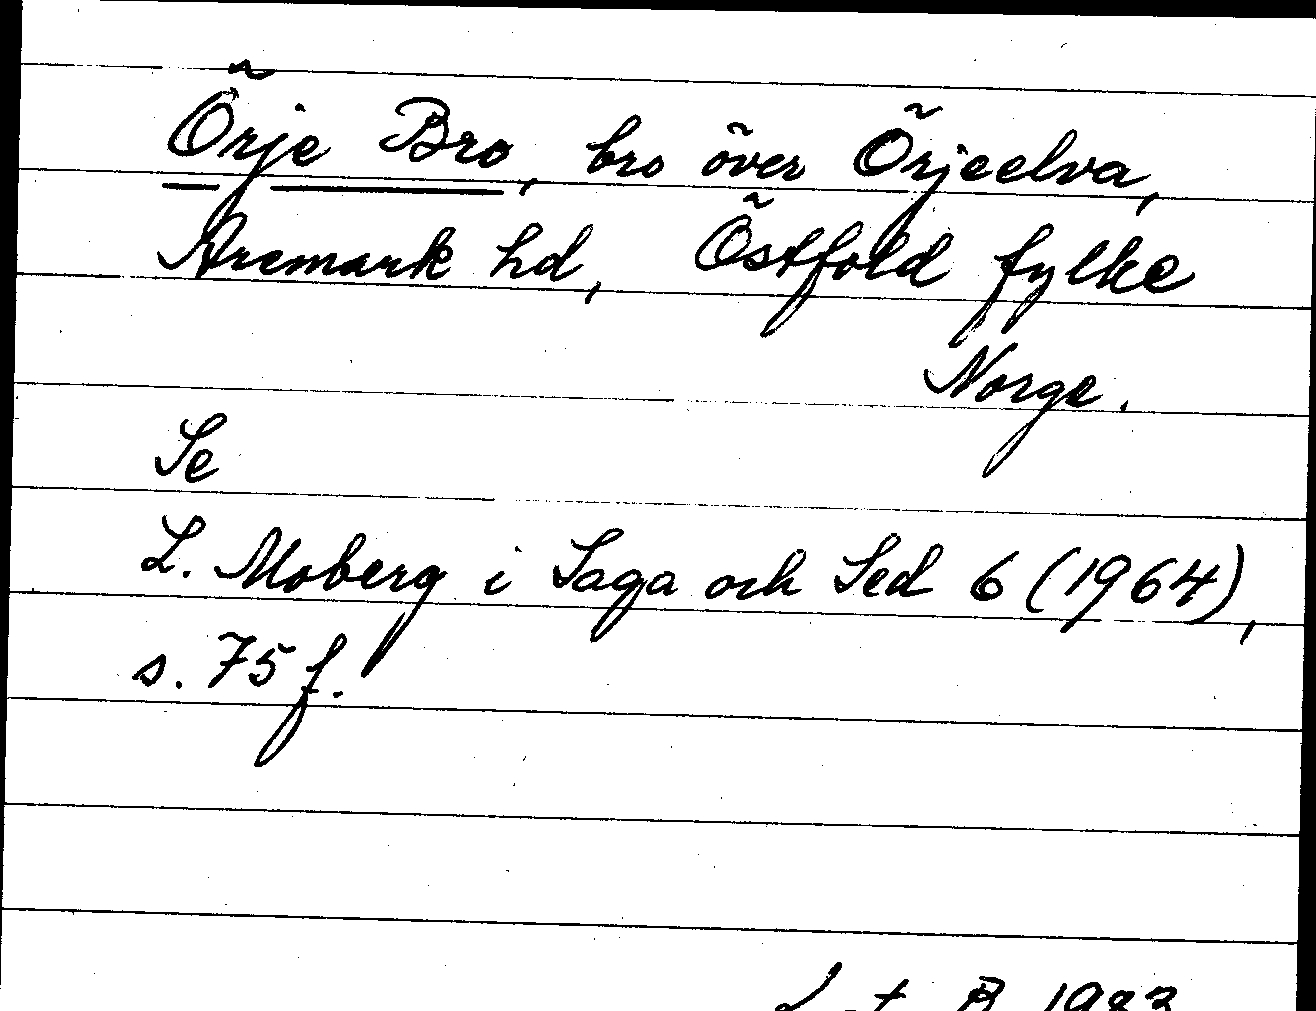 Örje Bro, bro över Örjeelva,
Aremark hd, Östfold fylke
Norge.
Se
L. Moberg i Saga och Sed 6 (1964),
s. 75 f.